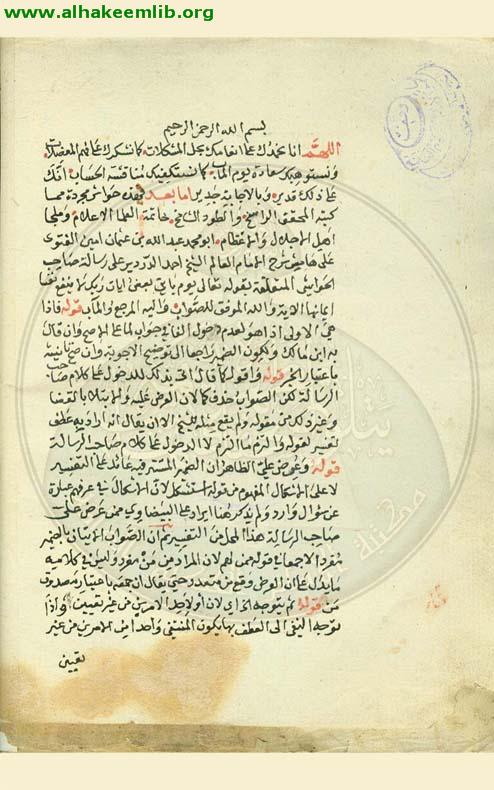 www.alhakeemlib.org
بسم الله الرحمن الرحيم
اللهم انا نحمدك على انعامك بحل المشكلات كما نشكرك على فهم المعضلات
ونستوهبك سعادة يوم المآب كما نستكفيك مناقشة الحساب انك
على ذلك قدير وبالاجابة جدير اما بعد فهذه حواش مجردة مما
كتبه المحقق الراسخ والطود الشامخ خاتمة العلما الاعلام وملجا
اهل الاجلال والاعظام ابو محمد عبد الله بن عثمان امين الفتوى
على هامش شرح الامام العالم الشيخ احمد الدردير على رسالة صاحب
الحواشى المتعلقة بقوله تعالى يوم ياتى بعض ايات ربك لا ينفع نفسا
ايمانها الاية والله الموفق للصواب واليه المرجع والمآب قوله فاذا
هي الاولى اذا هو لعدم دخول الفا في جواب لما على الاصح وان قال
به ابن مالك ويكون الضمير راجعا الى توضيح الاجوبة وان صح تانيثه
باعتبار الخبر قوله واقول كما قال الخ بذلك للدخول على كلام صاحب
الرسالة لكن الصواب حذف كما لان الغرض عليه والابتلاء بالقضا
وغير ذلك من مقوله ولم يقع مثله للشيخ الا ان يقال انه اراد به عطف
تفسير لقوله والتزم ما التزم لا الدخول على كلام صاحب الرسالة
قوله وعوض علي الظاهر ان الضمير المستتر فيه عائد على التفسير
لا على الاشكال المفهوم من قوله استشكل لان الاشكال في عرفهم عبارة
عن سؤال وارد ولم يذكر هنا ايراد على البيضاوى ممن عرض على
صاحب الرسالة هذا المحل من التفسير ثم ان الصواب الاتيان بالضمير
مفردا لا جمعا في قوله ممن لهم لان المراد من من مفرد وليس في كلامه
ما يدل على ان العرض وقع من متعدد حتى يقال ان جمعه باعتبار مصدوق
من قوله ثم يتوجه الخ اي لان او لاحد الامرين من غير تعيين واذا
توجه النفي الى العطف بها يكون المنتفى واحدا من الامرين من غير
تعيين